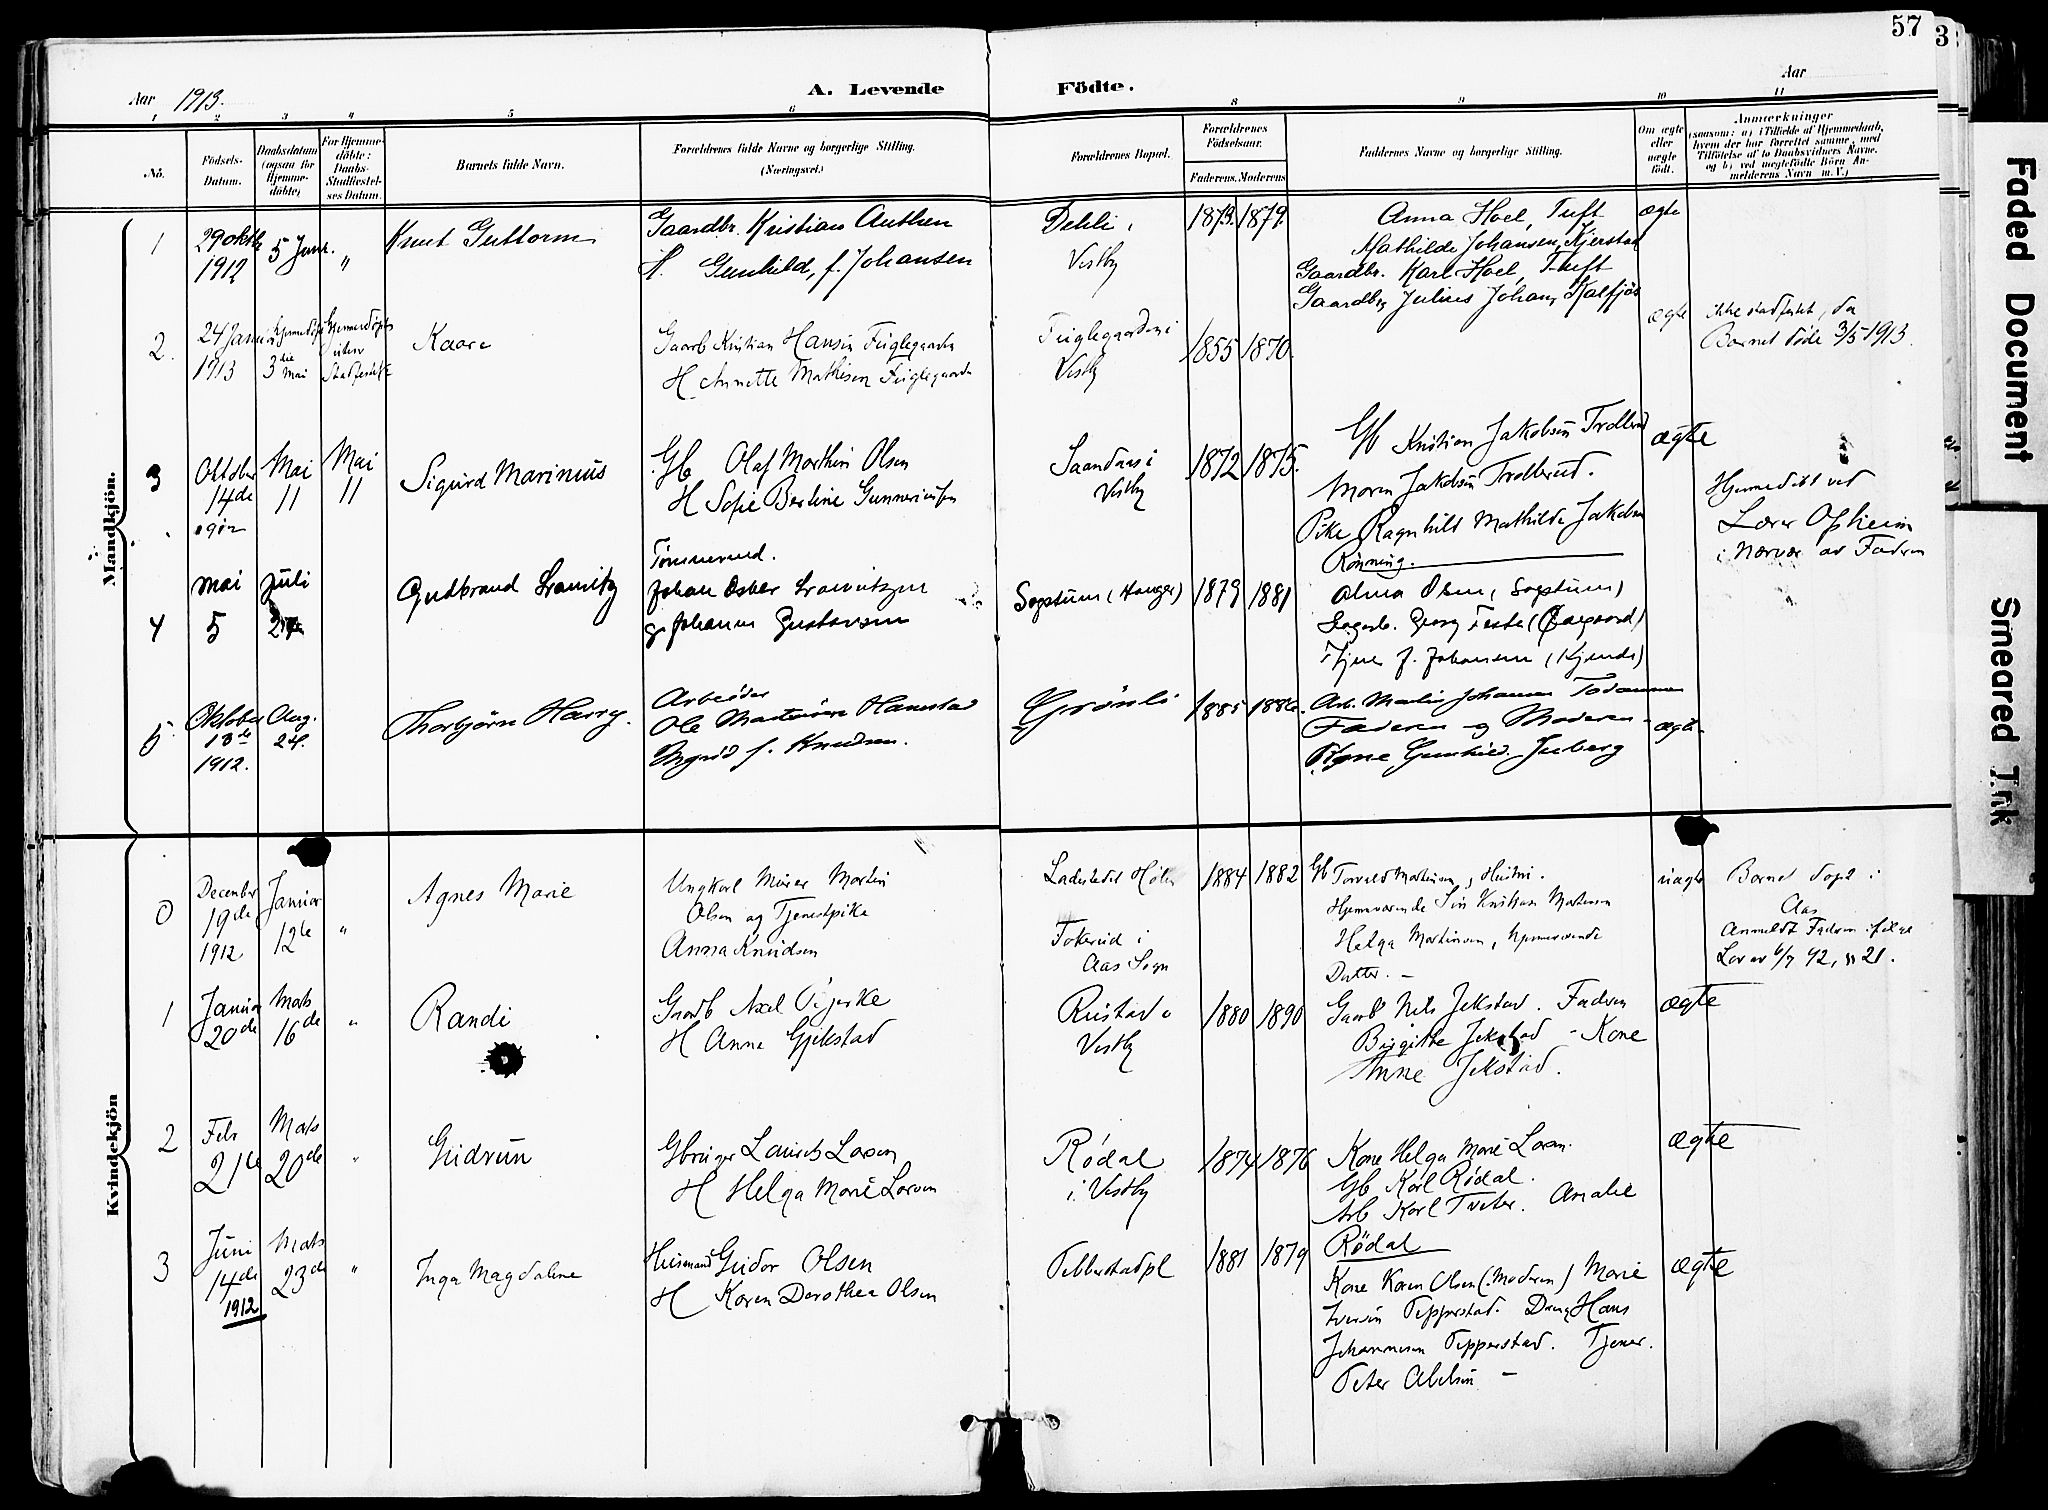 57
3
Aar 1913.
A. Levende Födte.
Aar
1 2 3 4 5 6 8 9 10 11
No.
Födsels-Datum.
Daabsdatum (ogsaa for Hjemme-döbte)
For Hjemme-döbte: Daabs-Stadfæstel-ses Datum.
Barnets fulde Navn.
Forældrenes fulde Navne og borgerlige Stilling. (Næringsvei.)
Forældrenes Bopæl.
Forældrenes Födselsaar.
Faderens. Moderens
Faddernes Navne og borgerlige Stilling.
Om ægte eller uægte födt.
Anmærkninger
(saasom: a) i Tilfælde af Hjemmedaab, hvem der har forrettet samme, med Tilföielse af to Daabsvidners Navne, og b) ved uægtefödte Börn An-melderens Navn m. V.)
Mandkjön.
1
29 oktb
1912
5 Janr.
"
Knut Guttorm
Gaardbr. Kristian Authen
H. Gunhild, f. Johansen
Dehli,
Vestby
1873 1879
Anna Hoel, Tuft
Mathilde Johansen, Kjerstad
Gaardbr. Karl Hoel, Thuft
Gaardbr Julius Johans Kalfjös
ægte
2.
24 Januar
1913
3die Mai
Kaare
Gaarb Kristian Hansen Fuglegaarden
H Annette Mathisen Fuglegaarden
Fuglegaarden i
Vestby
1855 1870
ægte
ikke stadfestet, da
Barnet døde 3/5 1913.
3
Oktober
14de
Mai
11
Mai
11
Sigurd Marinius
Gb Olaf Marthin Olsen
H Sofie Berline Gunneriusen
Saandaas i
Vestby
1872 1875.
Gb Kristian Jakobsen Trollerud
Maren Jakobsen Trollerud.
Pike Ragnhild Mathilde Jakobsen
Rønning.
ægte
Hjemmedøbt ved
Lærer Opheim
i Nærvær av Faderen
4
Mai
5
Juli
Gudbrand Lauritz
Tømmermand.
Johan Oskar Lauritzen
g. Johanne Gustavsen
Sogstum (Hauger)
1879 1881
Alma Olsen, (Sogstum)
Georg
f. Johansen
5
Oktober
13de
1912.
Aug.
24.
Thorbjörn Harry.
Arbeider
Ole Martinsen Hanestad
Ingrid f. Knudsen.
Grönli
1885 1886.
Arb. Martin Johansen
Faderen og Moderen
Gunhild
ægte
Kvindekjön
0
December
19de
1912
Januar
12te
"
Agnes Marie
Ungkarl Murer Martin
Olsen og Tjenestpike
Anna Knudsen
Ladestedet Hølen
Fokerud i
Aas Sogn
1884 1882
Gb Torvald Martinsen, Hustru.
Hjemmeværende Søn Kristian Martinsen
Helga Martinsen, hjemmeværende
Datter. –
uægte
Barnet døpt i
Aas
Anmeldt Faderen ifølge
Lov av 6/7 92, § 21.
1
Januar
20de
Mars
16de
"
Randi
Gaarb Axel Gjerke
H Anna Gjekstad
Rustad i
Vestby
1880 1890
Gaarb Nils Jekstad. Faderen
Birgitte Jekstad – Kone
Anne Jekstad.
ægte
2
Febr
21de
Mars
20de
"
Gudrun
Gbruger Laurits Larsen
H Helga Marie Larsen
Rødal
i Vestby
1874 1876
Kone Helga Marie Larsen.
Gb Karl Rødal.
Arb Karl Tveter. Amalie
Rødal
ægte
3
Juni
14de
1912
Mars
23de
"
Inga Magdalene
Husmand Gudor Olsen
H Karen Dorothea Olsen
Tebberstadpl
1881 1879
Kone Karen Olsen (Moderen) Marie
Iversen Tepperstad. Dreng Hans
Johannesen Tepperstad. Tjener.
Peter Abelsen –
ægte
Faded Document
Smeared Ink